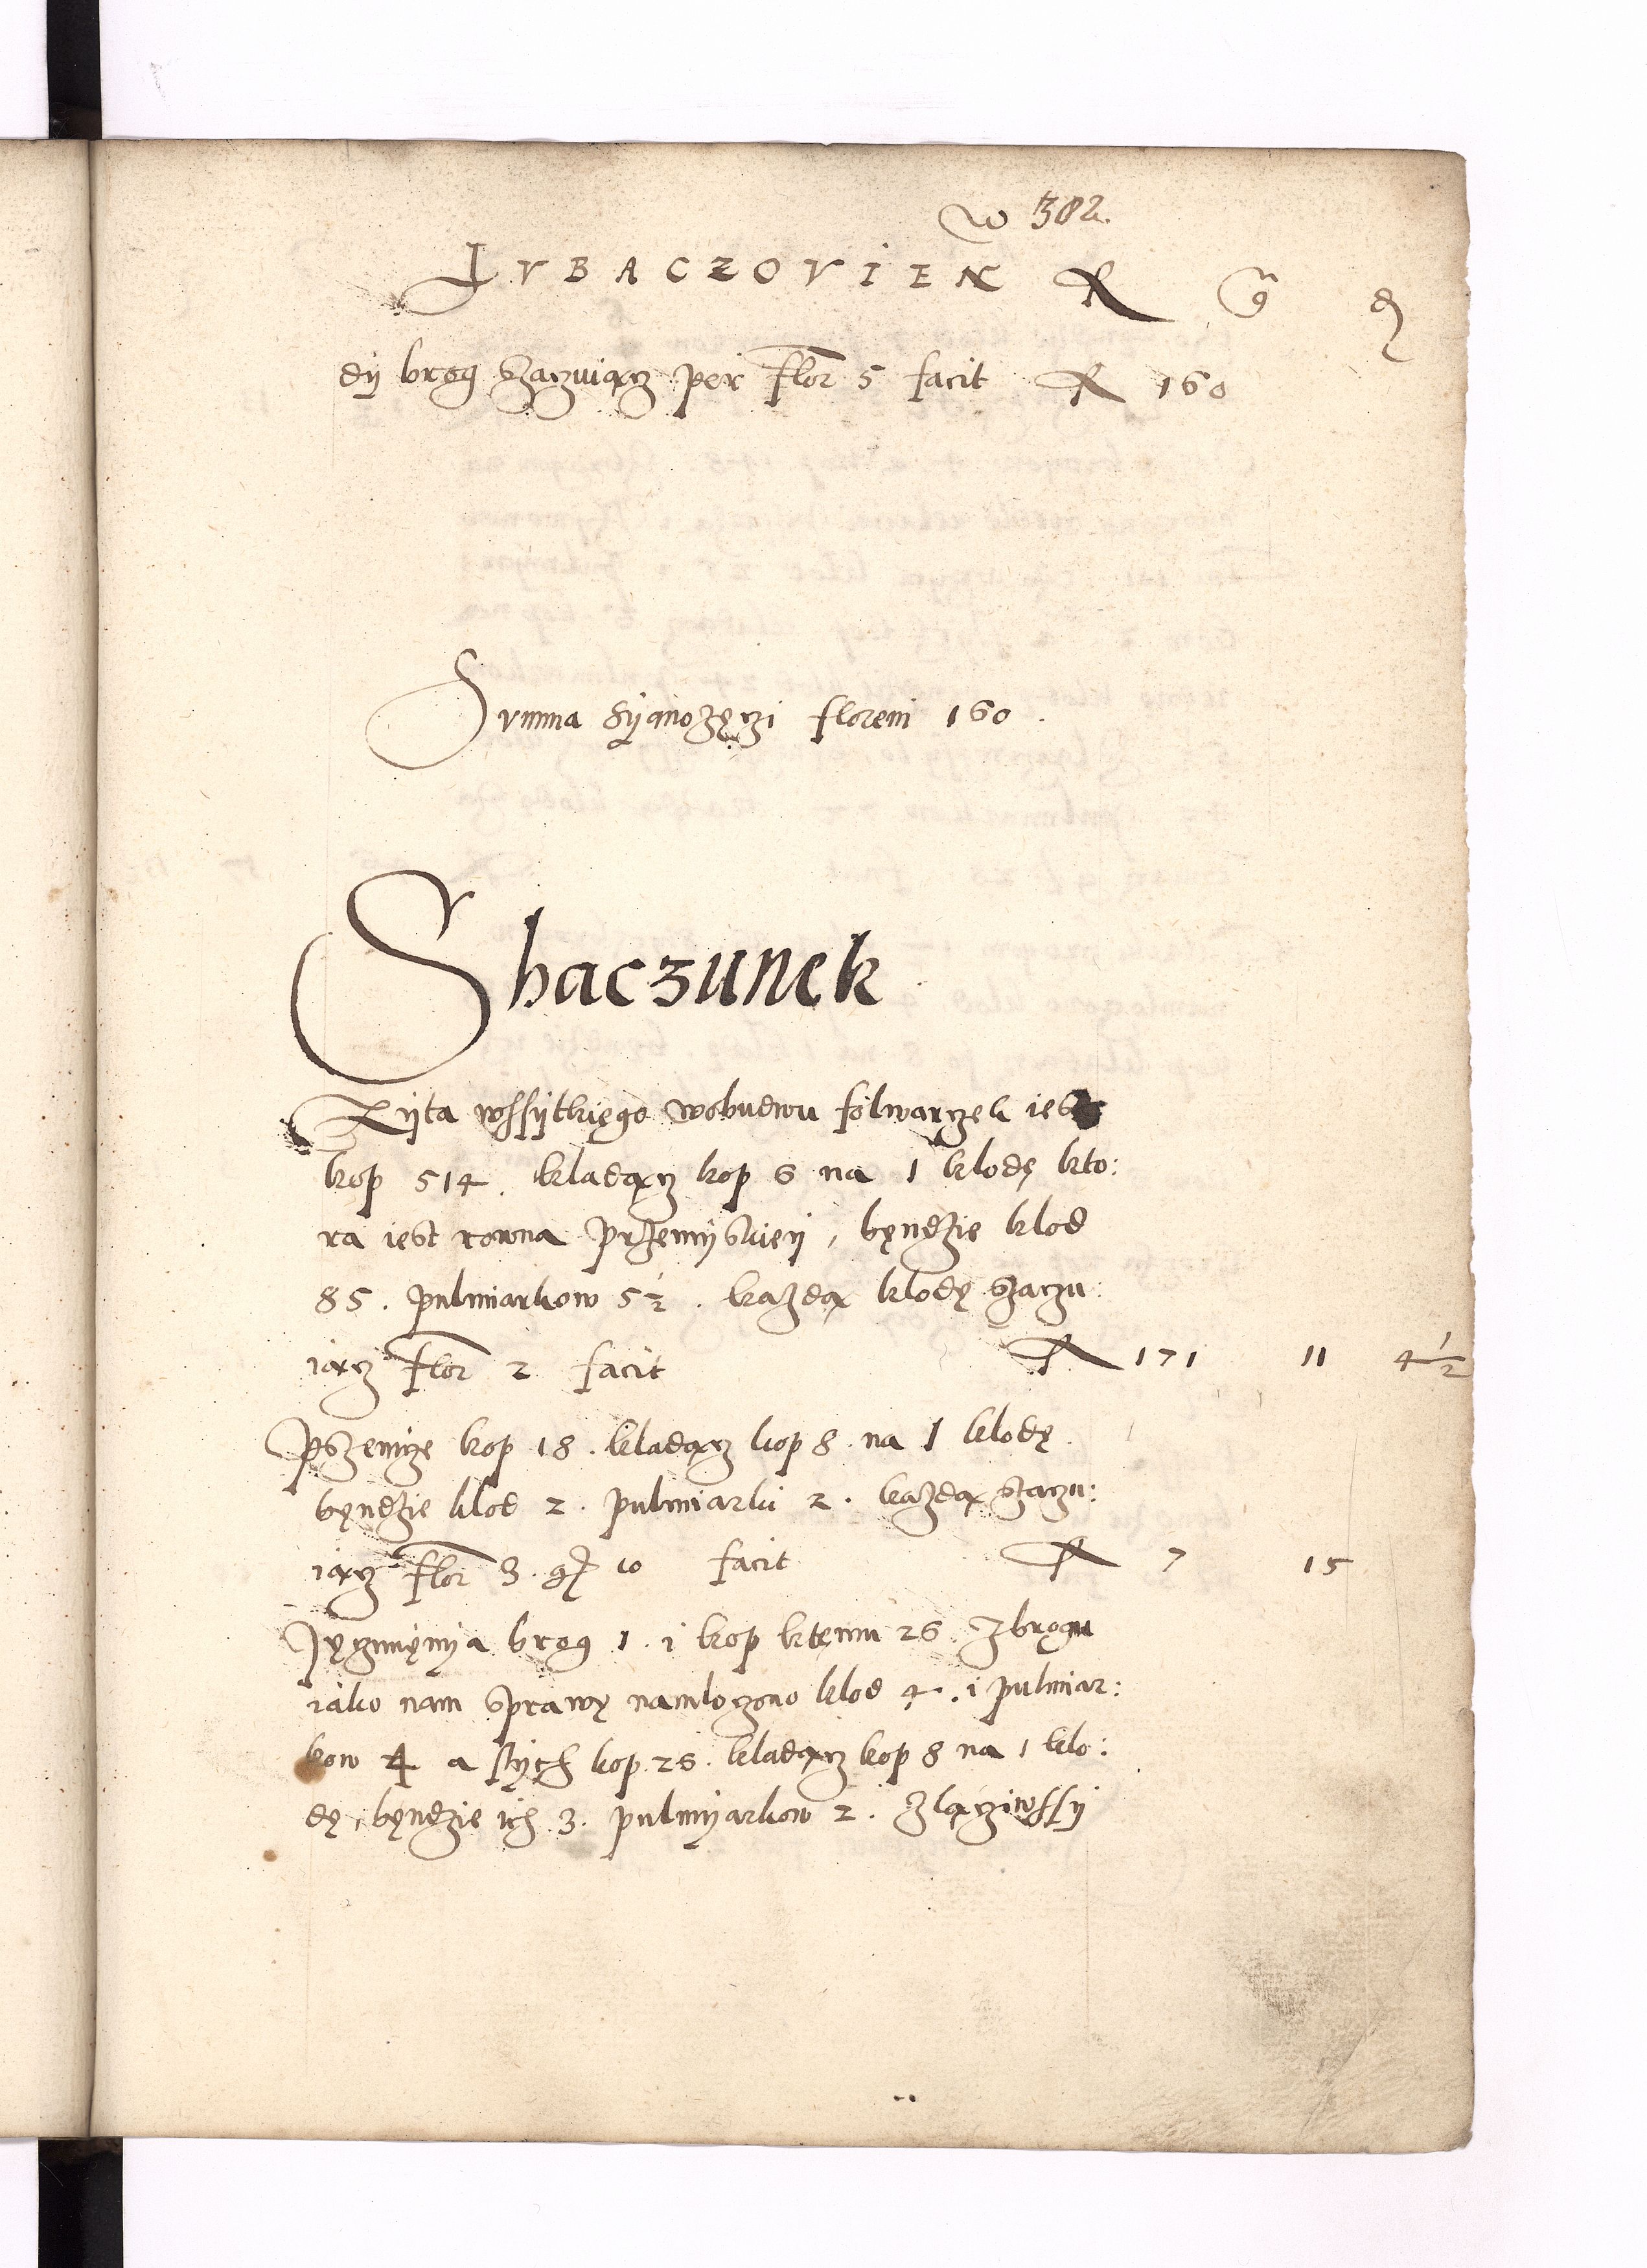 w 382.
LVBACZOVIEN fl g d
dÿ brog szaczuiącz per flor 5 facit fl 160
Summa Syanozęczi floreni 160.
Shaczunek
Zyta wssytkięgo wobudwu folwarczech iest
kop 514. kladącz kop 6 na 1 klodę kto:
ra iest rowna Przemÿskieÿ, bęndzie klod
85. pulmiarkow 5½. kazdą klodę szaczu:
iącz flor 2 facit fl 171 11 4½
Pszenicze kop 18. kladącz kop 8. na 1 klodę
bęndzie klod 2. pulmiarki 2. kazdą szaczu:
iącz flor 3. gr 10 facit fl 7 15
Jęczmięnÿa brog 1. i kop ktęmu 26. Zbrogu
iako nam sprawę namloczono klod 4. i pulmiar:
kow 4 a stÿch kop 26. kladącz kop 8 na 1 klo:
dę, bęndzie ich 3. pulmÿarkow 2. Zlącziwssÿ